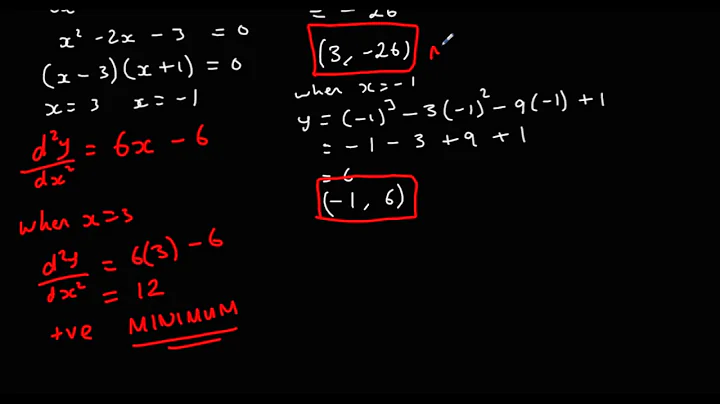 x² - 2x - 3 = 0
(x - 3)(x + 1) = 0
x = 3 x = -1
d²y/dx² = 6x - 6
when x = 3
d²y/dx² = 6(3) - 6
= 12
+ve MINIMUM
= - 26
(3, -26)
when x = -1
y = (-1)³ - 3(-1)² - 9(-1) + 1
= -1 - 3 + 9 + 1
= 6
(-1, 6)